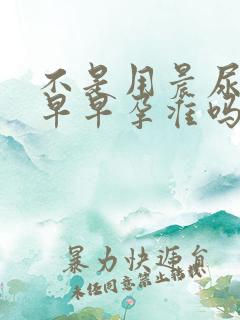 不是用晨尿
早早孕准吗
暴力快递员
未经同意禁止转载